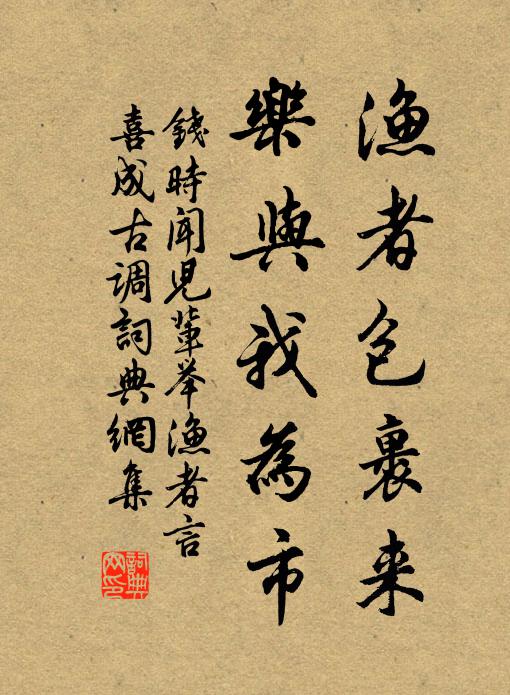 漁者包裹来
樂與我為市
錢時聞児輩举漁者言
喜成古调詞典網集
詞典网印